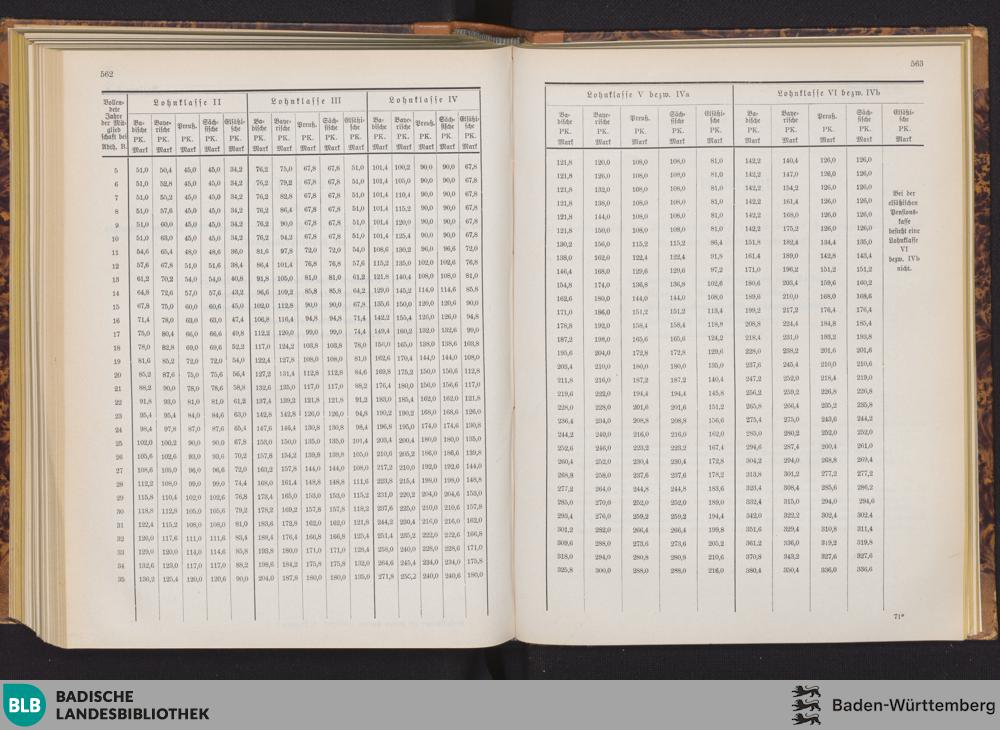 562
Vollendete Jahre der Mitgliedschaft bei Abth. B.
Lohnklasse II Lohnklasse III Lohnklasse IV
Badische PK. Bayerische PK. Preuß. PK. Sächsische PK. Elsässische PK. Badische PK. Bayerische PK. Preuß. PK. Sächsische PK. Elsässische PK. Badische PK. Bayerische PK. Preuß. PK. Sächsische PK. Elsässische PK.
Mark Mark Mark Mark Mark Mark Mark Mark Mark Mark Mark Mark Mark Mark Mark
5 51,0 50,4 45,0 45,0 34,2 76,2 75,0 67,8 67,8 51,0 101,4 100,2 90,0 90,0 67,8
6 51,0 52,8 45,0 45,0 34,2 76,2 79,2 67,8 67,8 51,0 101,4 105,0 90,0 90,0 67,8
7 51,0 55,2 45,0 45,0 34,2 76,2 82,8 67,8 67,8 51,0 101,4 110,4 90,0 90,0 67,8
8 51,0 57,6 45,0 45,0 34,2 76,2 86,4 67,8 67,8 51,0 101,4 115,2 90,0 90,0 67,8
9 51,0 60,0 45,0 45,0 34,2 76,2 90,0 67,8 67,8 51,0 101,4 120,0 90,0 90,0 67,8
10 51,0 63,0 45,0 45,0 34,2 76,2 94,2 67,8 67,8 51,0 101,4 125,4 90,0 90,0 67,8
11 54,6 65,4 48,0 48,6 36,0 81,6 97,8 72,0 72,0 54,0 108,6 130,2 96,0 96,6 72,0
12 57,6 67,8 51,0 51,6 38,4 86,4 101,4 76,8 76,8 57,6 115,2 135,0 102,0 102,6 76,8
13 61,2 70,2 54,0 54,0 40,8 91,8 105,0 81,0 81,0 61,2 121,8 140,4 108,0 108,0 81,0
14 64,8 72,6 57,0 57,6 43,2 96,6 109,2 85,8 85,8 64,2 129,0 145,2 114,0 114,6 85,8
15 67,8 75,0 60,0 60,6 45,0 102,0 112,8 90,0 90,0 67,8 135,6 150,0 120,0 120,6 90,0
16 71,4 78,0 63,0 63,0 47,4 106,8 116,4 94,8 94,8 71,4 142,2 155,4 126,0 126,0 94,8
17 75,0 80,4 66,0 66,6 49,8 112,2 120,0 99,0 99,0 74,4 149,4 160,2 132,0 132,6 99,0
18 78,0 82,8 69,0 69,6 52,2 117,0 124,2 103,8 103,8 78,0 165,0 138,0 138,6 103,8
19 81,6 85,2 72,0 72,0 54,0 122,4 127,8 108,0 108,0 81,0 162,6 170,4 144,0 144,0 108,0
20 85,2 87,6 75,0 75,6 56,4 127,2 131,4 112,8 112,8 84,6 169,8 175,2 150,0 150,6 112,8
21 88,2 90,0 78,0 78,6 58,8 132,6 135,0 117,0 117,0 88,2 176,4 180,0 156,0 156,6 117,0
22 91,8 93,0 81,0 81,0 61,2 137,4 139,2 121,8 121,8 91,2 183,0 185,4 162,0 162,0 121,8
23 95,4 95,4 84,0 84,6 63,0 142,8 142,8 126,0 126,0 94,8 190,2 190,2 168,0 168,6 126,0
24 98,4 97,8 87,0 87,6 65,4 147,6 146,4 130,8 130,8 98,4 196,8 195,0 174,0 174,6 130,8
25 102,0 100,2 90,0 90,0 67,8 153,0 150,0 135,0 135,0 101,4 203,4 200,4 180,0 180,0 135,0
26 105,6 102,6 93,0 93,6 70,2 157,8 154,2 139,8 139,8 105,0 210,6 205,2 186,0 186,6 139,8
27 108,6 105,0 96,0 96,6 72,0 163,2 157,8 144,0 144,0 108,0 217,2 210,0 192,0 192,6 144,0
28 112,2 108,0 99,0 99,0 74,4 168,0 161,4 148,8 148,8 111,6 223,8 215,4 198,0 198,0 148,8
29 115,8 110,4 102,0 102,6 76,8 173,4 165,0 153,0 153,0 115,2 231,0 220,2 204,0 204,6 153,0
30 118,8 112,8 105,0 105,6 79,2 178,2 169,2 157,8 157,8 118,2 237,6 225,0 210,0 210,6 157,8
31 122,4 115,2 108,0 108,0 81,0 183,6 172,8 162,0 162,0 121,8 244,2 230,4 216,0 216,0 162,0
32 126,0 117,6 111,0 111,6 83,4 188,4 176,4 166,8 166,8 125,4 251,4 235,2 222,0 222,6 166,8
33 129,0 120,0 114,0 114,6 85,8 193,8 180,0 171,0 171,0 128,4 258,0 240,0 228,0 228,6 171,0
34 132,6 123,0 117,0 117,0 88,2 198,6 184,2 175,8 175,8 132,0 264,6 245,4 234,0 234,0 175,8
35 136,2 125,4 120,0 120,6 90,0 204,0 187,8 180,0 180,0 135,0 271,8 250,2 240,0 240,6 180,0
563
Lohnklasse V bezw. IVa Lohnklasse VI bezw. IVb
Badische PK. Bayerische PK. Preuß. PK. Sächsische PK. Elsässische PK. Badische PK. Bayerische PK. Preuß. PK. Sächsische PK. Elsässische PK.
Mark Mark Mark Mark Mark Mark Mark Mark Mark Mark
121,8 120,0 108,0 108,0 81,0 142,2 140,4 126,0 126,0
121,8 126,0 108,0 108,0 81,0 142,2 147,0 126,0 126,0
121,8 132,0 108,0 108,0 81,0 142,2 154,2 126,0 126,0
121,8 138,0 108,0 108,0 81,0 142,2 161,4 126,0 126,0
121,8 144,0 108,0 108,0 81,0 142,2 168,0 126,0 126,0
121,8 150,0 108,0 108,0 81,0 142,2 175,2 126,0 126,0
130,2 156,0 115,2 115,2 86,4 151,8 182,4 134,4 135,0
138,0 162,0 122,4 122,4 91,8 161,4 189,0 142,8 143,4
146,4 168,0 129,6 129,6 97,2 171,0 196,2 151,2 151,2
154,8 174,0 136,8 136,8 102,6 180,6 203,4 159,6 160,2
162,6 180,0 144,0 144,0 108,0 189,6 210,0 168,0 168,6
171,0 186,0 151,2 151,2 113,4 199,2 217,2 176,4 176,4
178,8 192,0 158,4 158,4 118,8 208,8 224,4 184,8 185,4
187,2 198,0 165,6 165,6 124,2 218,4 231,0 193,2 193,8
195,6 204,0 172,8 172,8 129,6 228,0 238,2 201,6 201,6
203,4 210,0 180,0 180,0 135,0 237,6 245,4 210,0 210,6
211,8 216,0 187,2 187,2 140,4 247,2 252,0 218,4 219,0
219,6 222,0 194,4 194,4 145,8 256,2 259,2 226,8 226,8
228,0 228,0 201,6 201,6 151,2 265,8 266,4 235,2 235,8
236,4 234,0 208,8 208,8 156,6 275,4 273,0 243,6 244,2
244,2 240,0 216,0 216,0 162,0 285,0 280,2 252,0 252,0
252,6 246,0 223,2 223,2 167,4 294,6 287,4 260,4 261,0
260,4 252,0 230,4 230,4 172,8 304,2 294,0 268,8 269,4
268,8 258,0 237,6 237,6 178,2 313,8 301,2 277,2 277,2
277,2 264,0 244,8 244,8 183,6 323,4 308,4 285,6 286,2
285,0 270,0 252,0 252,0 189,0 332,4 315,0 294,0 294,6
293,4 276,0 259,2 259,2 194,4 342,0 322,2 302,4 302,4
301,2 282,0 266,4 266,4 199,8 351,6 329,4 310,8 311,4
309,6 288,0 273,6 273,6 205,2 361,2 336,0 319,2 319,8
318,0 294,0 280,8 280,8 210,6 370,8 343,2 327,6 327,6
325,8 300,0 288,0 288,0 216,0 380,4 350,4 336,0 336,6
Bei der
elsässischen
Pensions-
kasse
besteht eine
Lohnklasse
VI
bezw. IVb
nicht.
71*
BLB
BADISCHE
LANDESBIBLIOTHEK
Baden-Württemberg